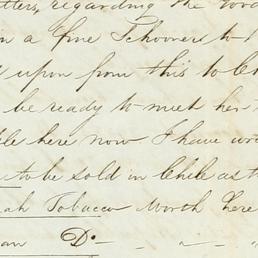 tters, regarding the
in a fine Schooners to
upon from this to
be ready to meet her
le here now I have
to be sold in Chile as
ah Tobacco worth here
an Do - - " - "